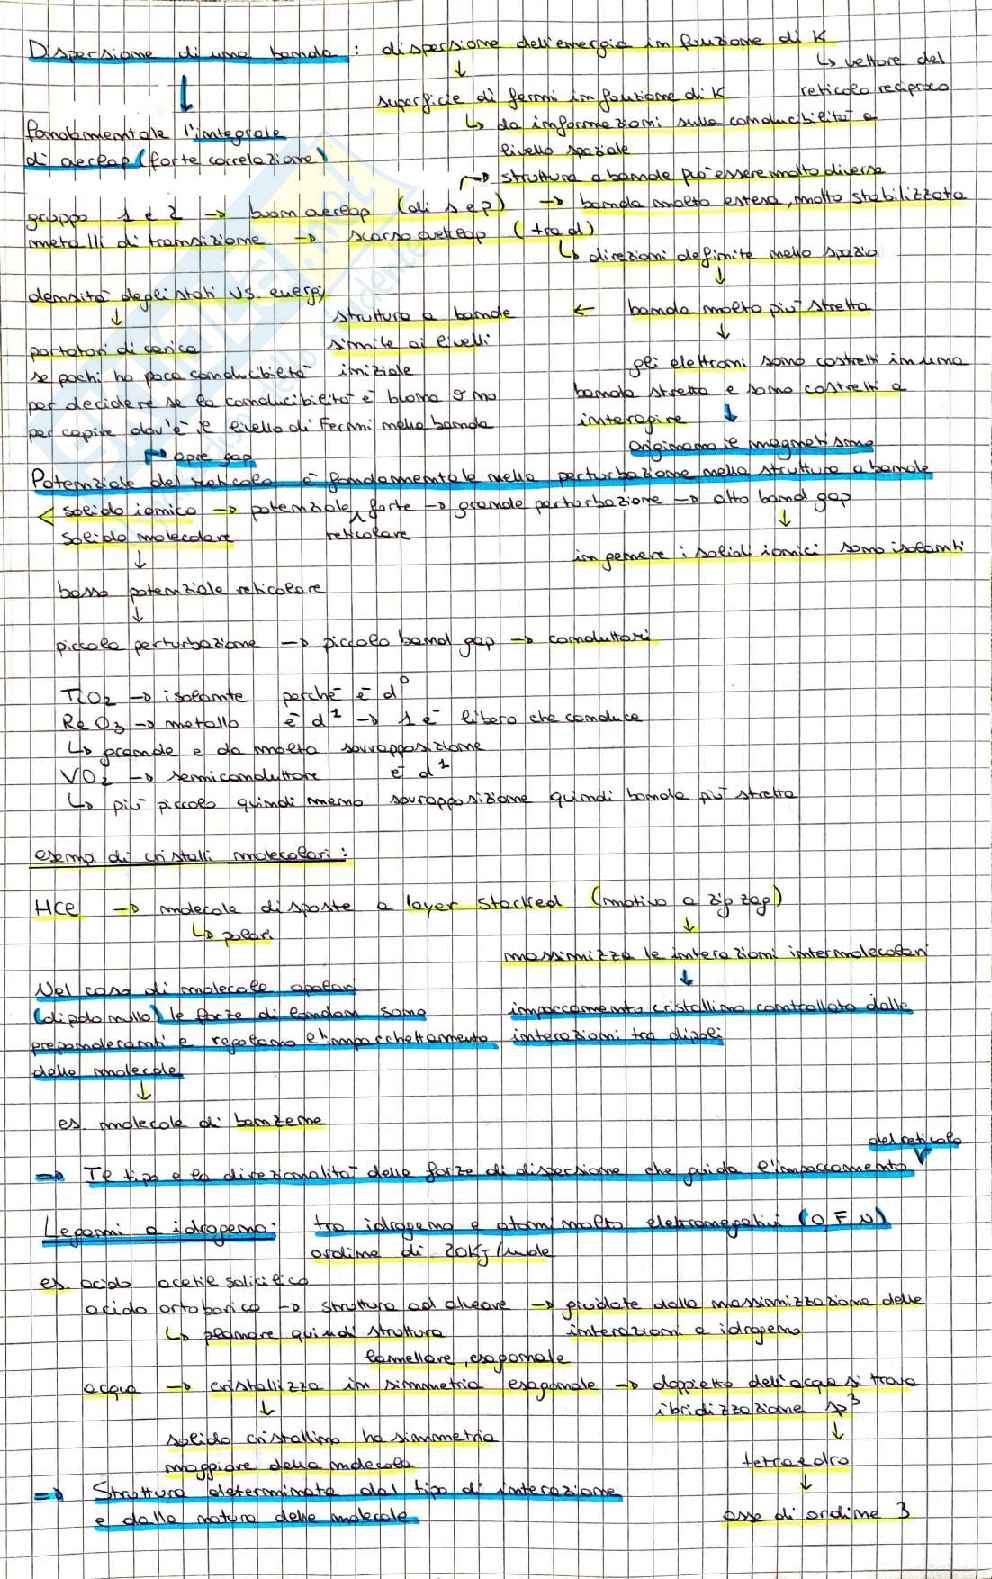 Dispersione di una banda : dispersione dell'energia in funzione di K
↳ vettore del
reticolo reciproco
superficie di fermi in funzione di K
↳ da informazioni sulla conducibilità a
livello spaziale
fondamentale l'integrale
di overlap (forte correlazione)
→ struttura a bande può essere molto diversa
gruppo 1 e 2 → buon overlap (di s e p) → banda molto estesa, molto stabilizzata
metalli di transizione → scarso overlap (tra d)
↳ direzioni definite nello spazio
densità degli stati vs. energy
struttura a bande ← banda molto più stretta
simile ai livelli
iniziale
portatori di carica
se pochi ho poca conducibilità
per decidere se la conducibilità è buona o no
per capire dov'è il livello di Fermi nella banda
gli elettroni sono costretti in una
banda stretta e sono costretti a
interagire
originano il magnetismo
→ apre gap
Potenziale del reticolo è fondamentale nella perturbazione nella struttura a bande
solido ionico → potenziale forte → grande perturbazione → alto band gap
reticolare
solido molecolare
in genere i solidi ionici sono isolanti
basso potenziale reticolare
piccola perturbazione → piccolo band gap → conduttori
TiO2 → isolante perché è d⁰
ReO3 → metallo è d¹ → 1 e⁻ libero che conduce
↳ grande e da molta sovrapposizione
VO2 → semiconduttore è d¹
↳ più piccolo quindi meno sovrapposizione quindi banda più stretta
esempi di cristalli molecolari :
HCl → molecole disposte a layer stacked (motivo a zig zag)
↳ polari
massimizza le interazioni intermolecolari
impaccamento cristallino controllato dalle
interazioni tra dipoli
Nel caso di molecole apolari
(dipolo nullo) le forze di London sono
preponderanti e regolano l'impacchettamento
delle molecole
es. molecole di benzene
del reticolo
⇒ Il tipo e la direzionalità delle forze di dispersione che guida l'impaccamento
Legami a idrogeno: tra idrogeno e atomi molto elettronegativi (O, F, N)
ordine di 20KJ/mole
es. acido acetil salicilico
acido ortoborico → struttura ad alveare → guidate dalla massimizzazione delle
interazioni a idrogeno
↳ planare quindi struttura
lamellare, esagonale
acqua → cristallizza in simmetria esagonale → doppietto dell'acqua si trova
ibridizzazione sp³
solido cristallino ha simmetria
maggiore della molecola
tetraedro
asse di ordine 3
⇒ Struttura determinata dal tipo di interazione
e dalla natura delle molecole